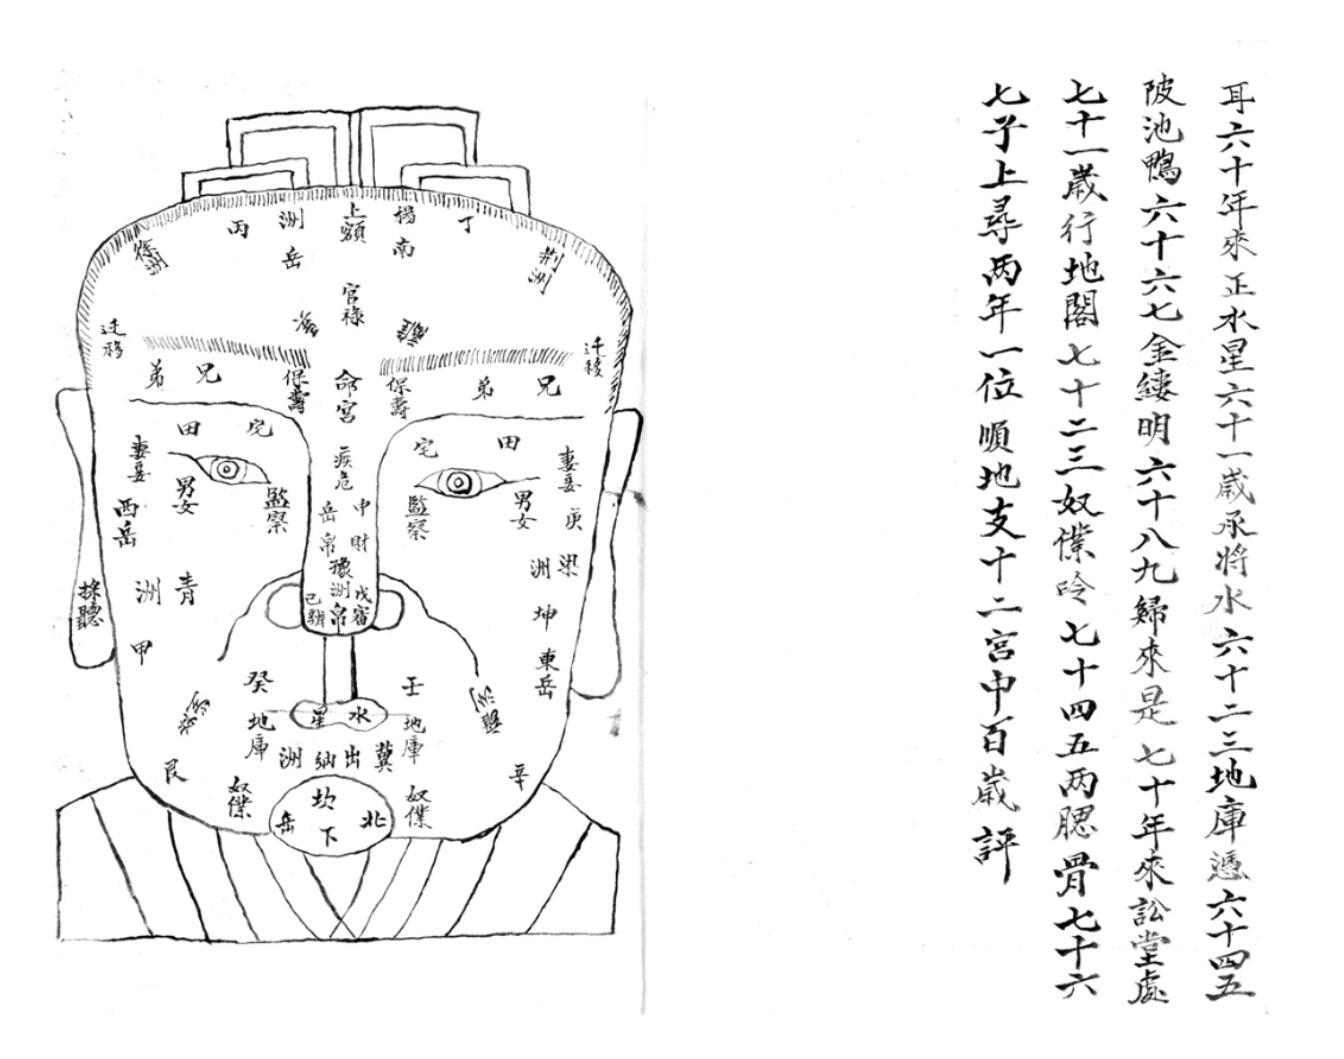 耳六十年來正水星六十一歲承将水六十二三地庫憑六十四五
陂池鴨六十六七金縷明六十八九歸來是七十年來訟堂處
七十一歲行地閣七十二三奴僕吟七十四五两腮骨七十六
七子上尋两年一位順地支十二宮中百歲評
丁
楊南
上額
洲岳
丙
徐洲
荆洲
官祿
迁移
迁移
兄
弟
保壽
命宮
保壽
兄
弟
田
宅
宅
田
妻妾
男女
監察
疾危
監察
男女
妻妾
庚
西岳
中
岳
財
帛
豫洲
梁
洲
青
洲
坤
戊
審
帛
己
東岳
採聽
甲
癸
壬
水
星
地庫
地庫
冀
出
納
洲
艮
辛
奴僕
奴僕
坎
北
下
岳